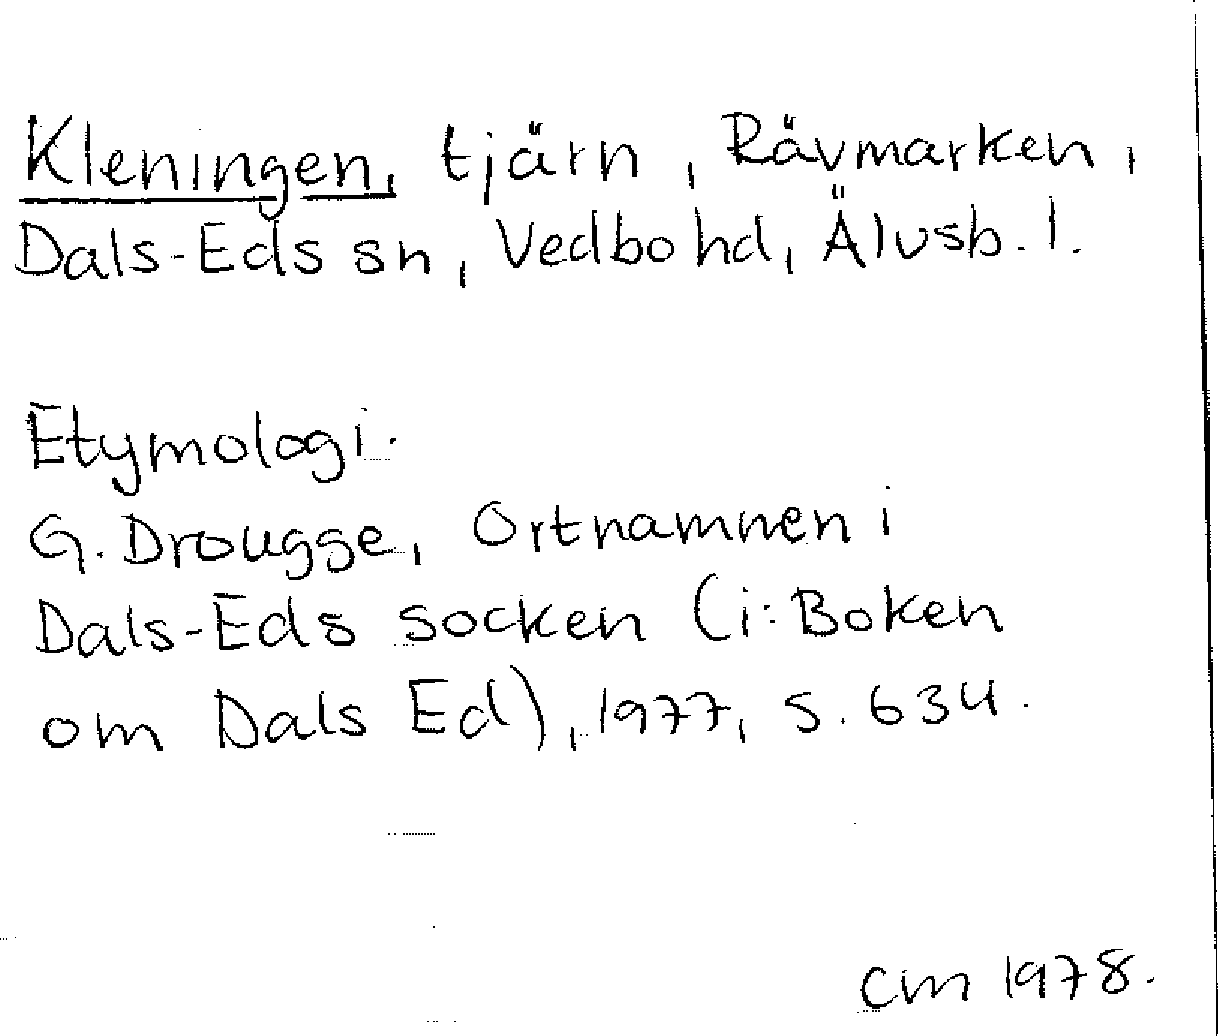 Kleningen, tjärn, Rävmarken,
Dals-Eds sn, Vedbo hd, Älvsb. l.
Etymologi.
G. Drougge, Ortnamnen i
Dals-Eds socken (i: Boken
om Dals Ed), 1977, s. 634.
CM 1978.